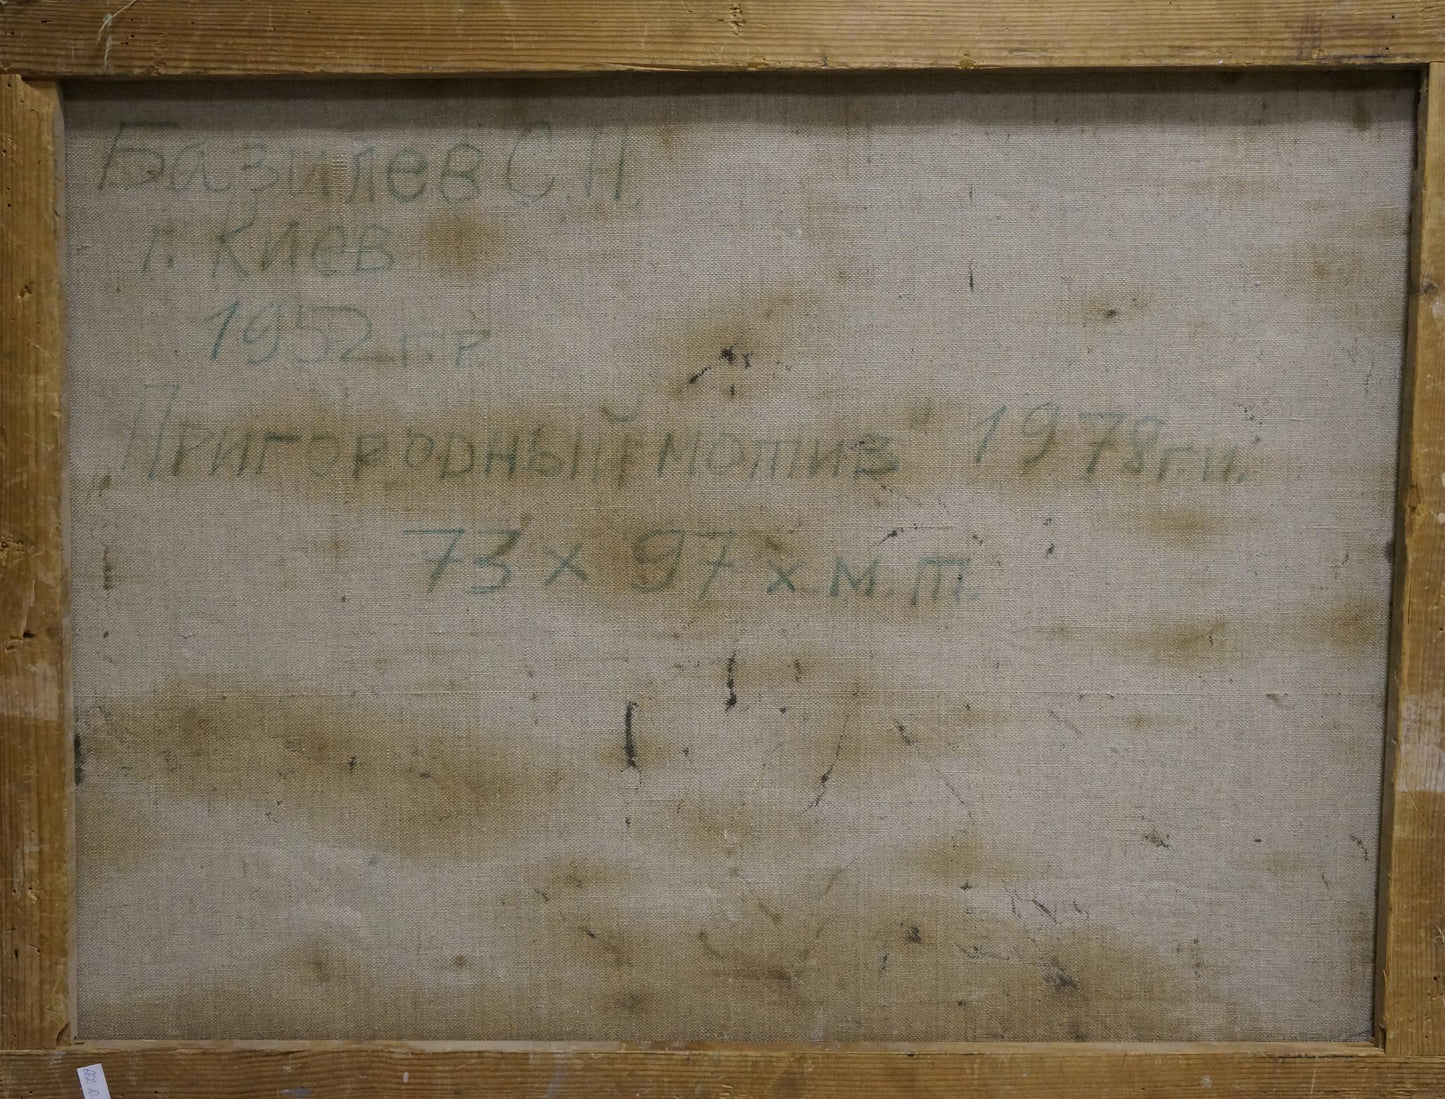 Базилев С.Н.
г. Киев
1952 г.р.
"Пригородный мотив" 1978 г.н.
73 х 97 х.м.т.